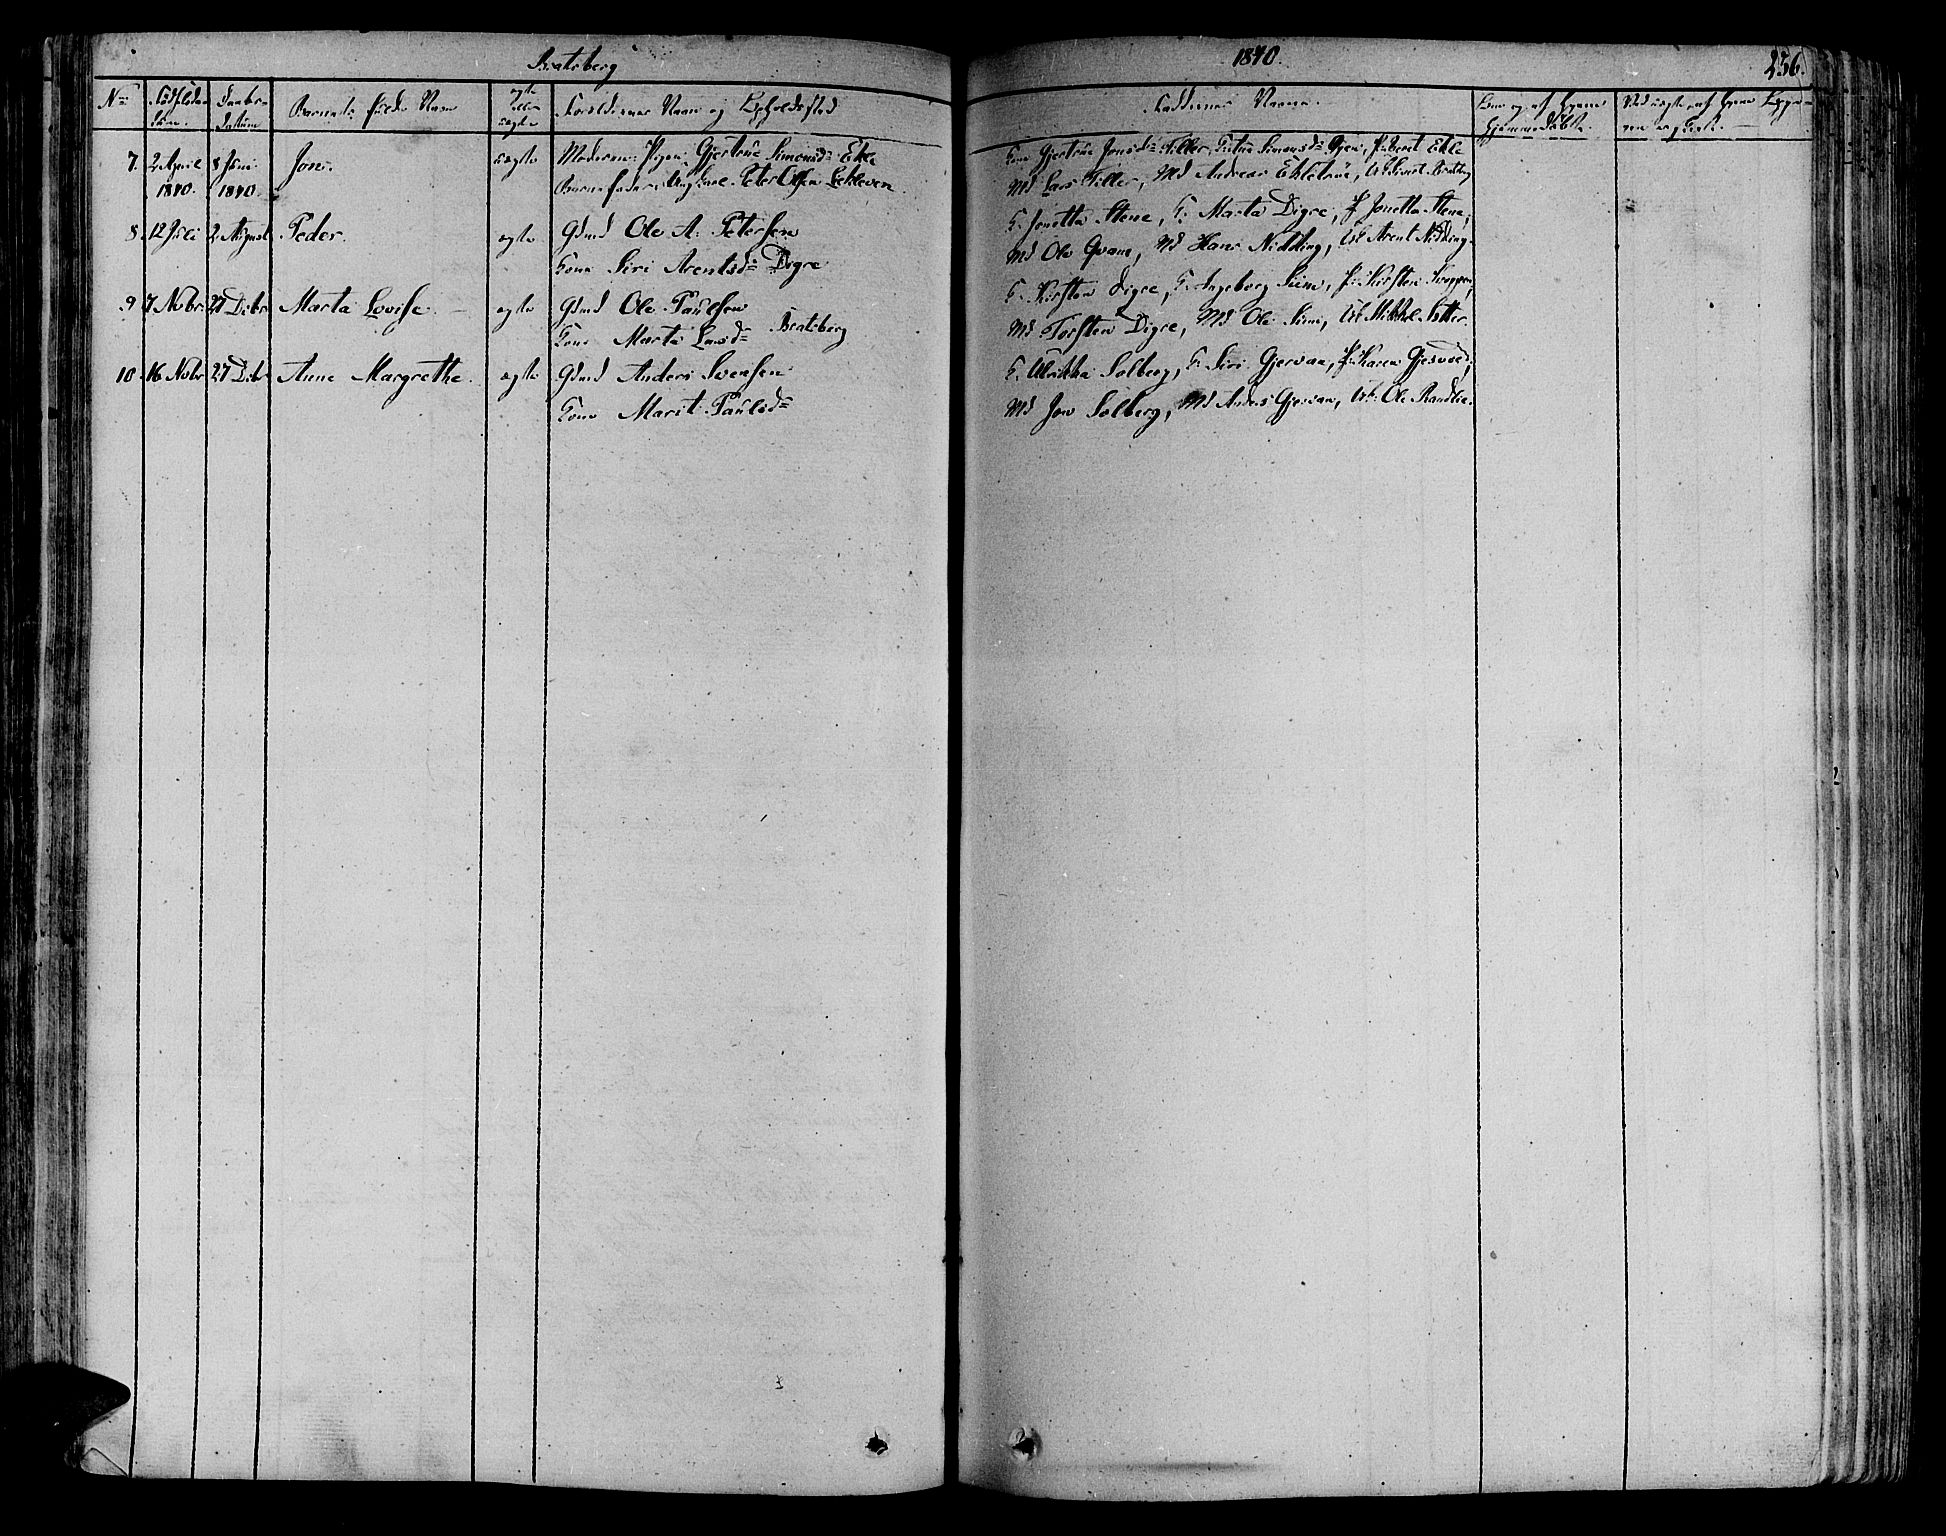 Bratsberg
1840.
256.
No
Fødselsdatum.
Daabsdatum
Barnets fulde Navn
ægte eller uægte
Forældrenes Navn og Opholdssted
Faddernes Navne.
Hjemmedøbte.
7. 2 April 1840. 8 Juni 1840. Jon. uægte Moderen: Pigen Gjertrue Simonsd: Ekle
Barnefader: Ungkarl Peter Olsen Lekleven.
Kone Gjertrue Jonsd: Tiller, Pigen, P: Beret Ekle
Md Lars Tiller, Md Andreas Ekletrøe, Uk Sivert Bratsberg
8. 12 Juli 2 August Peder. ægte Gdmd Ole A. Petersen
Kone Siri Arentsd: Digre
K. Jonetta Stene, K. Marta Digre, P. Jonetta Stene,
Md Ole Qvam, Md Hans Nidding, Uk Arent Nidding.
9. 7 Novbr. 27 Decbr. Marta Lovise. ægte Gdmd Ole Paulsen
Kone Marta Larsd: Bratsberg
K. Kirsten Digre, K. Ingeborg Siem, P: Kirsten
Md Torsten Digre, Md Ole Siem, Uk Mikkel Sætter.
10. 16 Novbr 27 Decbr. Anne Margrethe. ægte Gdmd Anders Svensen
Kone Marit Paulsd:
K. Ulrikka Solberg, K. Siri Gjervan, P: Karen
Md Jon Solberg, Md Anders Gjervan, Uk: Ole Randlie.